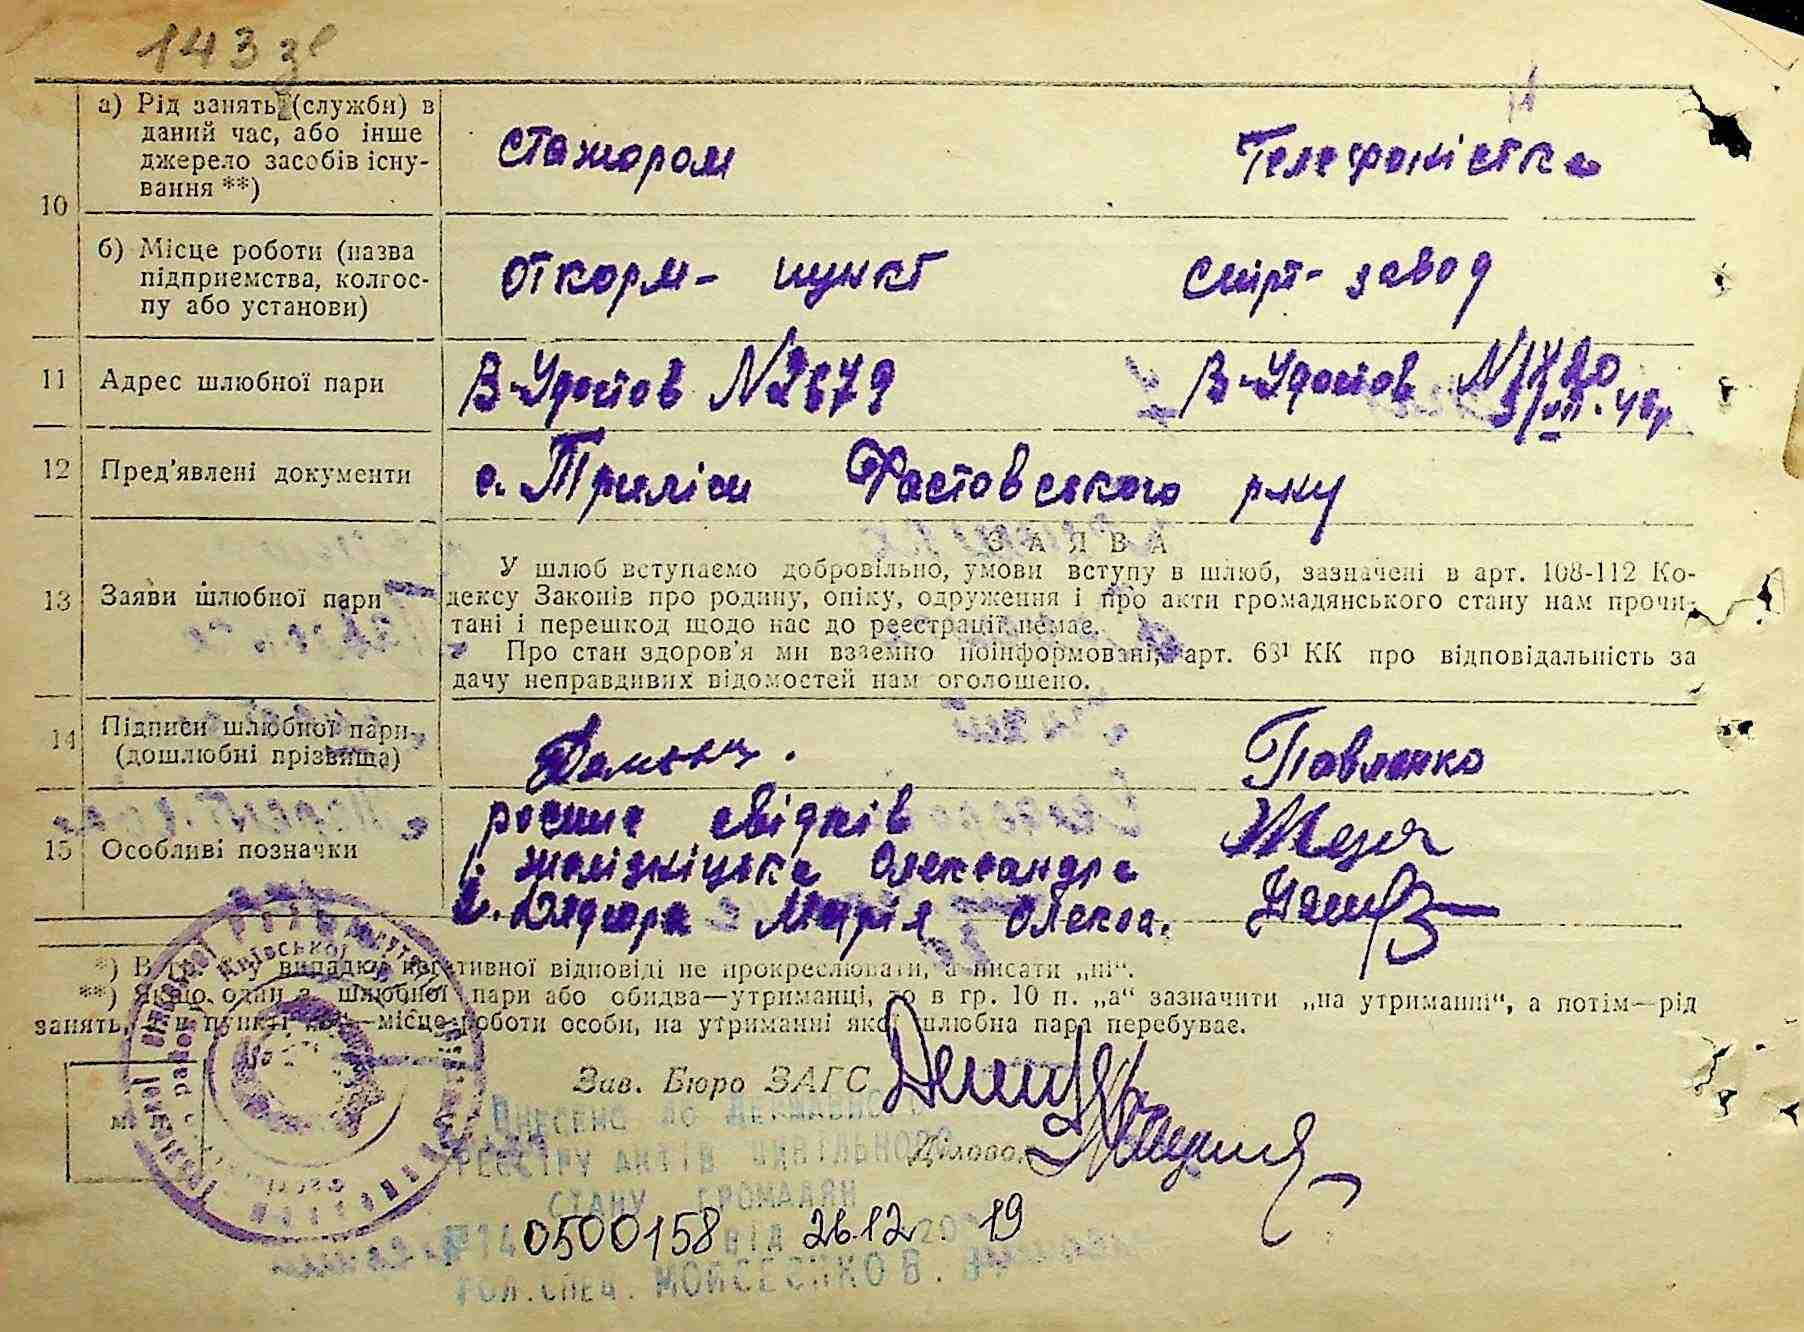 143 зв
10
а) Рід занять (служби) в
даний час, або інше
джерело засобів існу-
вання **)
стажором
Телефоністка
б) Місце роботи (назва
підприємства, колгос-
пу або установи)
откорм- пункт
спірт- завод
11 Адрес шлюбної пари
12 Пред'явлені документи
В-Удостов №2679
В-Удостов
с. Триліси Фастовського р-ну
13 Заяви шлюбної пари
ЗАЯВА
У шлюб вступаємо добровільно, умови вступу в шлюб, зазначені в арт. 108-112 Ко-
дексу Законів про родину, опіку, одруження і про акти громадянського стану нам прочи-
тані і перешкод щодо нас до реєстрації немає.
Про стан здоров'я ми взаємно поінформовані, арт. 68¹ КК про відповідальність за
дачу неправдивих відомостей нам оголошено.
14 Підписи шлюбної пари
(дошлюбні прізвища)
Павленко
15 Особливі позначки
росписи свідків
1. Желізніцька Олександра
2. Марія Олекса.
*) В гр. випадку негативної відповіді не прокреслювати, а писати „ні“.
**) Якщо один з шлюбної пари або обидва—утриманці, то в гр. 10 п. „а“ зазначити „на утриманні“, а потім—рід
занять, а в пункті —місце роботи особи, на утриманні якої шлюбна пара перебуває.
Зав. Бюро ЗАГС
Діловод
м. п.
ВНЕСЕНО ДО ДЕРЖАВНОГО
РЕЄСТРУ АКТІВ ЦИВІЛЬНОГО
СТАНУ ГРОМАДЯН
0500158 ВІД 26.12 2019
ГОЛ. СПЕЦ. МОЙСЕЄНКО В.